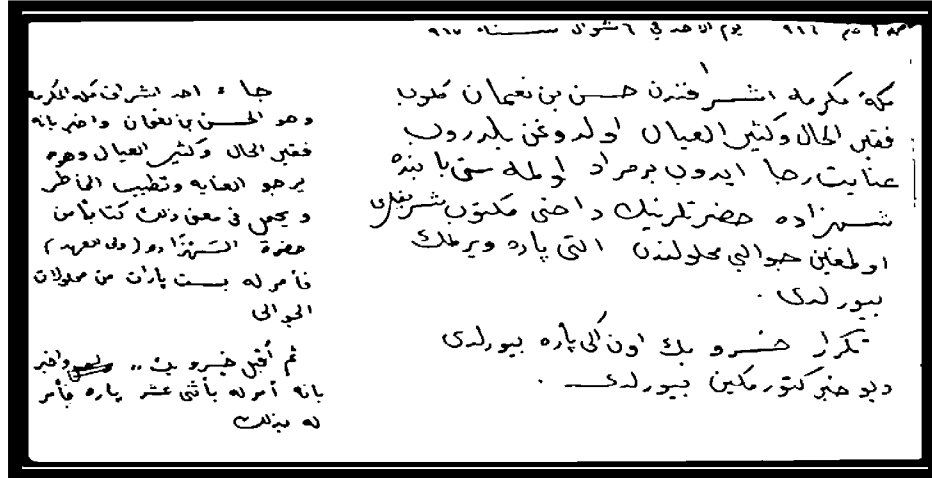 ٩١٦ يوم الاحد في ٦ شوال سنة ٩٦٧
مكهٔ مكرمه اشرافندن حسن بن نعمان كلوب
فقير الحال وكثير العيال اولدوغن بلدروب
عنايت رجا ايدوب برمراد اولمه سى بابنده
شهزاده حضرتلرينك داخى مكتوب شريفلرى
اولمغين جوالي محلولندن التى پاره ويرملك
بيورلدى .
تكرار خسرو بك اون اكى پاره بيورلدى
ديو خبر كتورمكين بيورلدى .
جاء احد اشراف مكه المكرمه
وهو الحسن بن نعمان واخبر بانه
فقير الحال وكثير العيال وهو
يرجو العنايه وتطييب الخاطر
و يحمل في معنى ذلك كتابا من
حضرة الشهزاده (ولى العهد)
فأمر له بست پارات من محلولات
الجوالى
ثم أقبل خسرو بك .. واخبر
بانه أمر له بأثنى عشر پاره فأمر
له بذلك